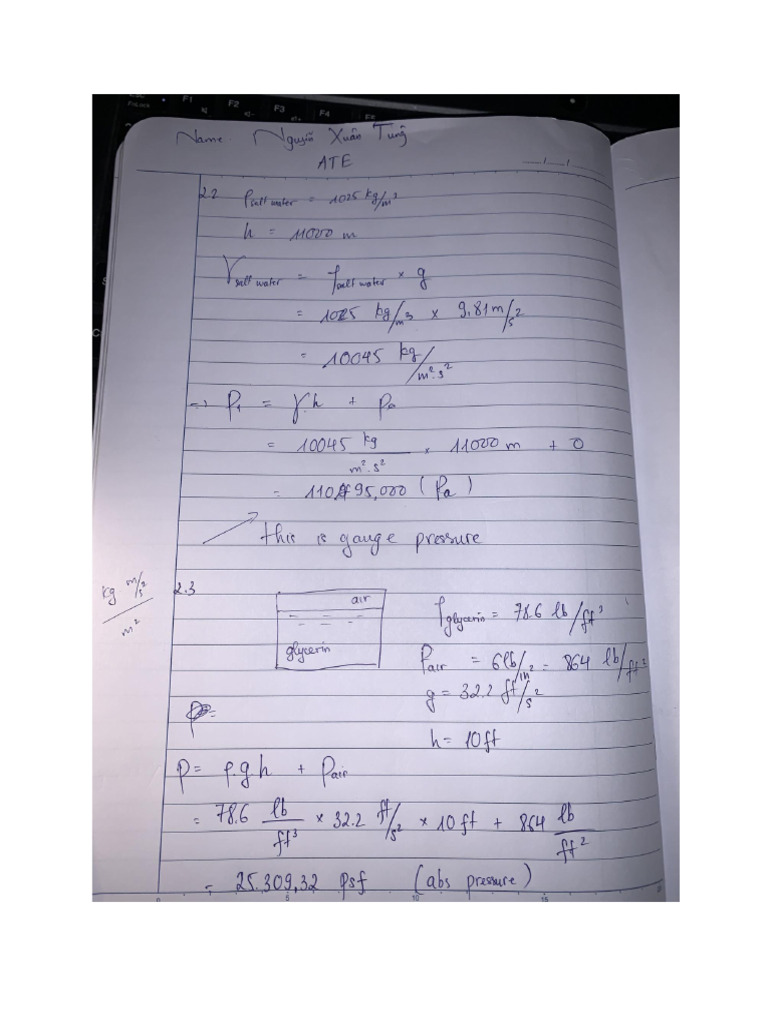 F1
F2
F3
F4
Name Nguyễn Xuân Tùng
ATE
__/__/__
2.2 ρsalt water = 1025 kg/m³
h = 11000 m
γsalt water = ρsalt water × g
= 1025 kg/m³ × 9,81 m/s²
= 10045 kg/m².s²
→ P₁ = γ.h + Pa
= 10045 kg/m².s² × 11000 m + 0
= 110,495,000 (Pa)
this is gauge pressure
kg m/s²/m²
2.3
air
glycerin
ρglycerin = 78.6 lb/ft³
Pair = 6 lb/in² = 864 lb/ft²
g = 32.2 ft/s²
h = 10 ft
P = ρ.g.h + Pair
= 78.6 lb/ft³ × 32.2 ft/s² × 10 ft + 864 lb/ft²
= 25.309,32 psf (abs pressure)
0 5 10 15